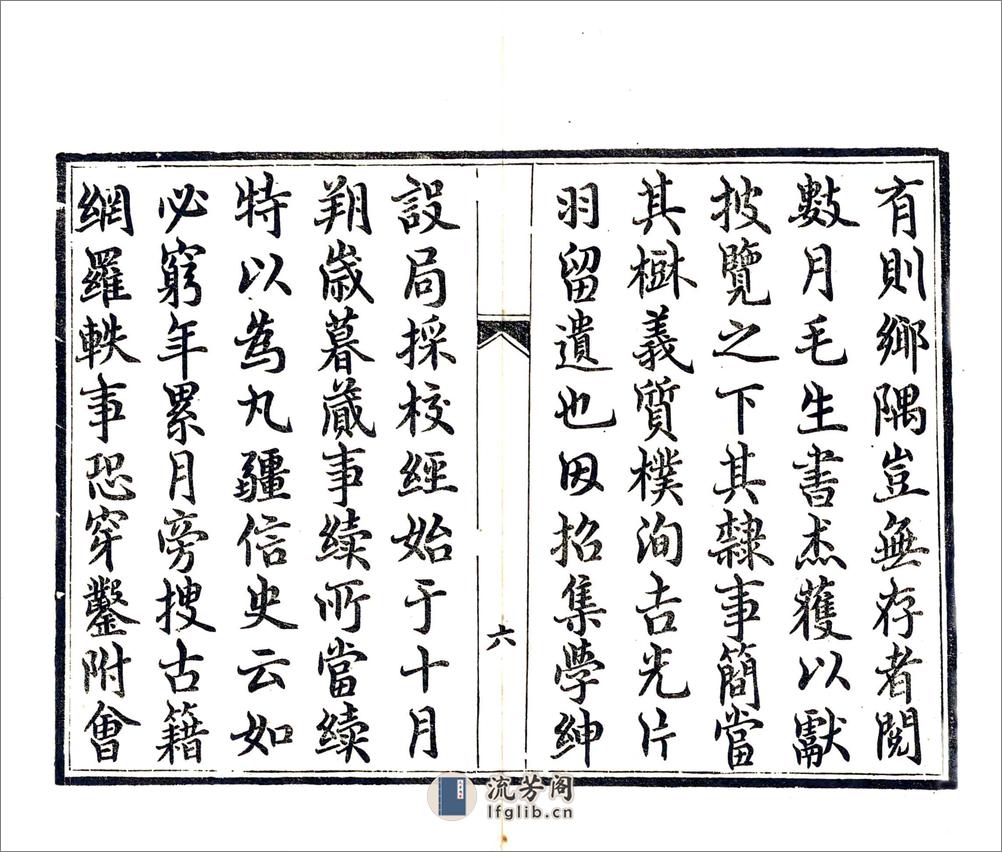 有則鄉隅豈無存者閱
數月毛生書杰獲以獻
披覽之下其隸事簡當
其樹義質樸洵吉光片
羽留遺也因招集學紳
六
設局採校經始于十月
朔歲暮蕆事續所當續
特以為九疆信史云如
必窮年累月旁搜古籍
網羅軼事恐穿鑿附會
流芳阁
lfglib.cn